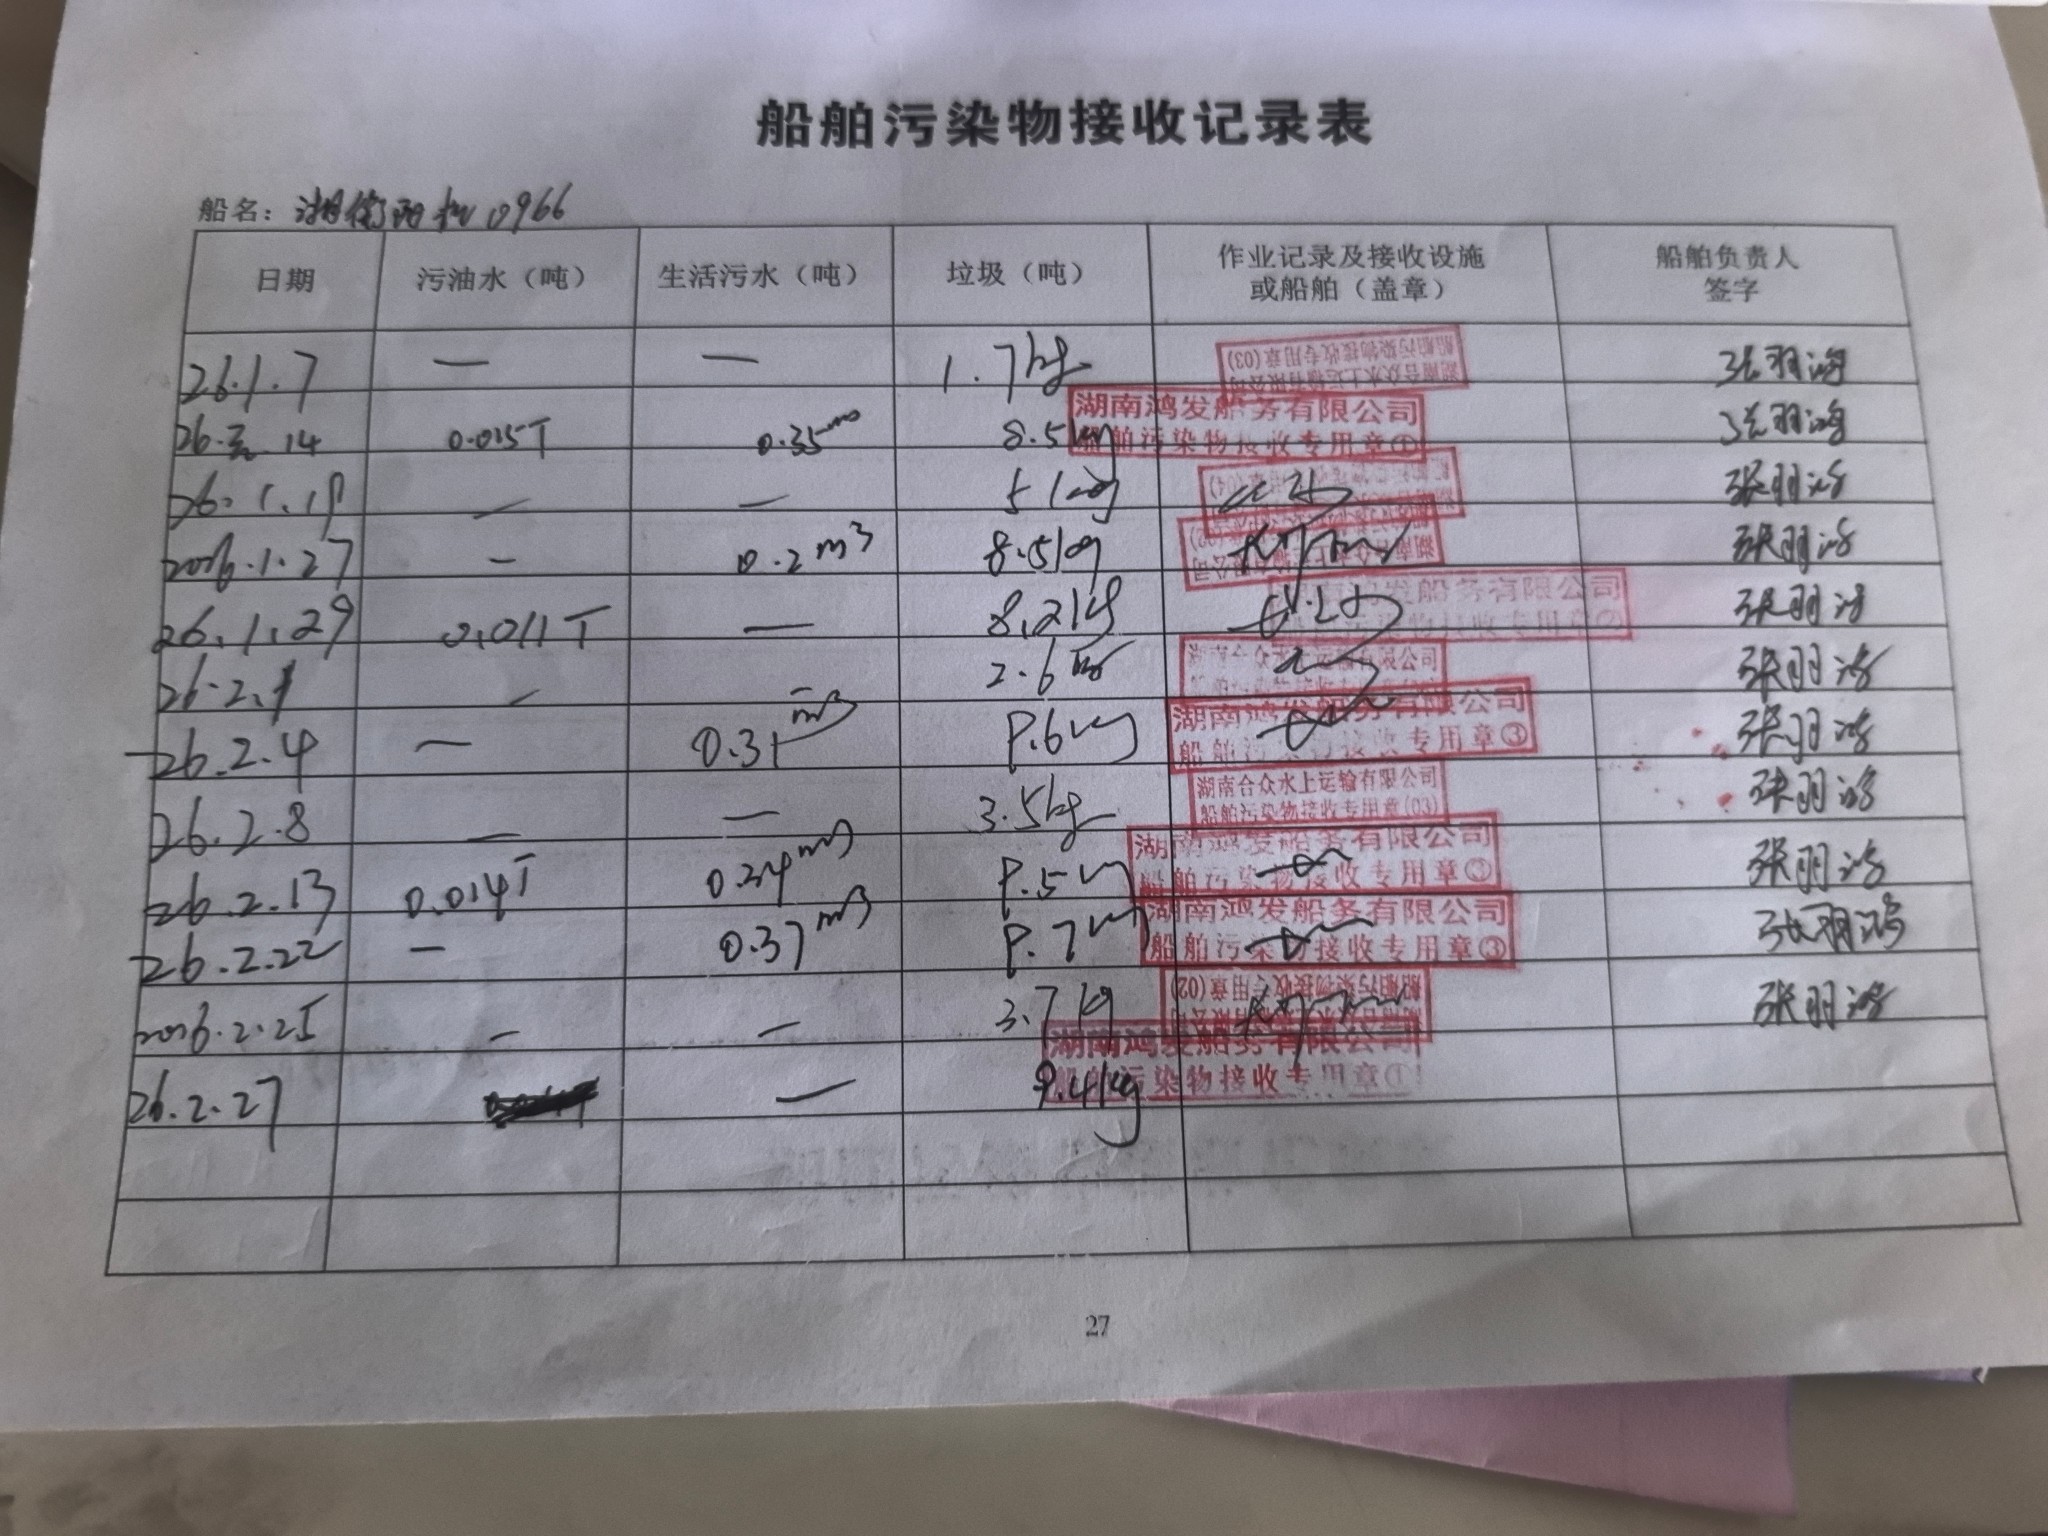 船舶污染物接收记录表
船名： 湘衡阳机0966
日期 污油水（吨） 生活污水（吨） 垃圾（吨） 作业记录及接收设施或船舶（盖章） 船舶负责人签字
26.1.7 — — 1.7kg 湖南合众水上运输有限公司 船舶污染物接收专用章(03) 张羽鸿
26. 14 0.015T 0.35 8.5kg 湖南鸿发船务有限公司 船舶污染物接收专用章① 张羽鸿
26.1.19 — — 5kg 张羽鸿
2026.1.27 — 0.2m3 8.5kg 张羽鸿
26.1.29 0.011T — 8.2kg 鸿发船务有限公司 污染物接收专用章② 张羽鸿
26.2.1 — 2.6 湖南合众水上运输有限公司 张羽鸿
26.2.4 — 0.31m3 8.6kg 湖南鸿发船务有限公司 船舶污染物接收专用章③ 张羽鸿
26.2.8 — — 3.5kg 湖南合众水上运输有限公司 船舶污染物接收专用章(03) 张羽鸿
26.2.13 0.014T 0.34m3 8.5kg 湖南鸿发船务有限公司 船舶污染物接收专用章 张羽鸿
26.2.22 — 0.37m3 8.7kg 湖南鸿发船务有限公司 船舶污染物接收专用章③ 张羽鸿
2026.2.25 — — 3.7kg 船舶污染物接收专用章(02) 张羽鸿
26.2.27 — 9.4kg 湖南鸿发船务有限公司 船舶污染物接收专用章①
27